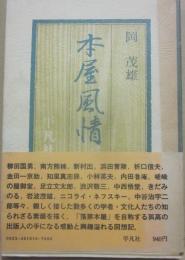 岡 茂雄
本屋風情
平凡社
柳田国男、南方熊楠、新村出、浜田青陵、折口信夫、
金田一京助、知里真志保、小林英夫、内田魯庵、嵯峨
の屋御室、足立文太郎、渋沢敬三、中西悟堂、きだみ
のる、岩波茂雄、ニコライ・ネフスキー、中谷治宇二
郎等々、親しく接した数多くの学者・文化人たちの知
られざる素顔を描く、「落第本屋」を自称する孤高の
出版人の手になる感動と興趣溢れる回想記。
平凡社
940円